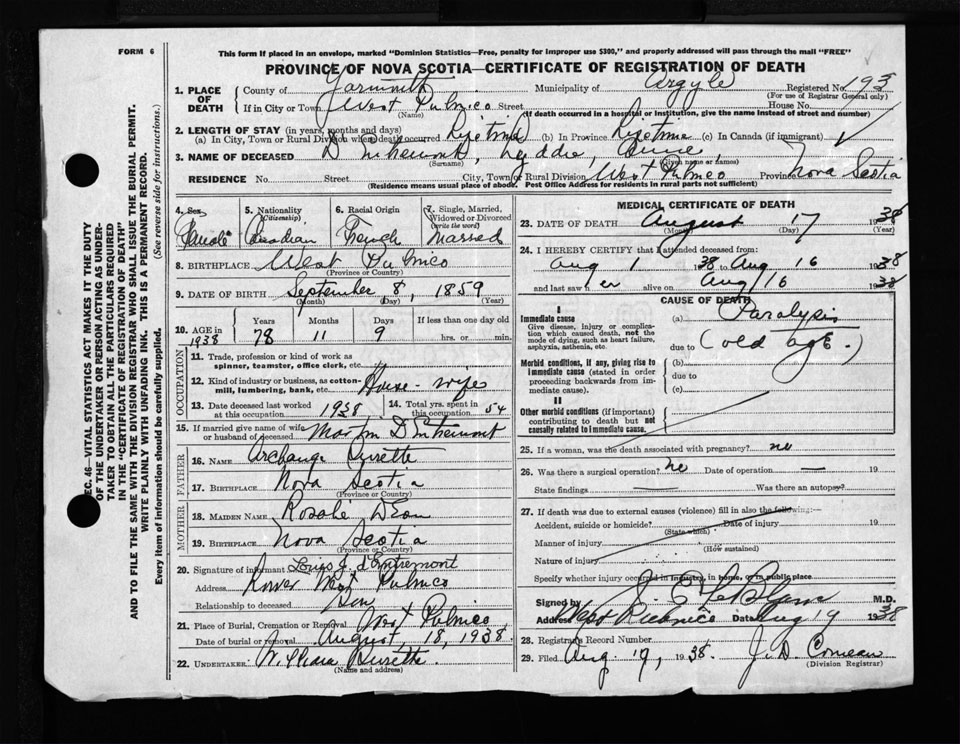 FORM 6
This form if placed in an envelope, marked "Dominion Statistics—Free, penalty for improper use $300," and properly addressed will pass through the mail "FREE"
PROVINCE OF NOVA SCOTIA—CERTIFICATE OF REGISTRATION OF DEATH
1. PLACE OF DEATH
County of Yarmouth Municipality of Argyle Registered No. 193
(For use of Registrar General only)
If in City or Town West Pubnico Street House No.
(Name) (If death occurred in a hospital or institution, give the name instead of street and number)
2. LENGTH OF STAY (in years, months and days)
(a) In City, Town or Rural Division where death occurred lifetime (b) In Province lifetime (c) In Canada (if immigrant)
3. NAME OF DECEASED D'Entremont, Lyddie, Anne
(Surname) (Given name or names)
RESIDENCE No. Street City, Town or Rural Division West Pubnico Province Nova Scotia
(Residence means usual place of abode. Post Office Address for residents in rural parts not sufficient)
4. Sex Female
5. Nationality (Citizenship) Canadian
6. Racial Origin French
7. Single, Married, Widowed or Divorced (write the word) Married
8. BIRTHPLACE West Pubnico
(Province or Country)
9. DATE OF BIRTH September 8, 1859
(Month) (Day) (Year)
10. AGE in 1938 Years 78 Months 11 Days 9 If less than one day old hrs. or min.
OCCUPATION
11. Trade, profession or kind of work as spinner, teamster, office clerk, etc.
12. Kind of industry or business, as cotton-mill, lumbering, bank, etc. House-wife
13. Date deceased last worked at this occupation 1938
14. Total yrs. spent in this occupation 54
15. If married give name of wife or husband of deceased D'Entremont
FATHER
16. NAME Archange Surette
17. BIRTHPLACE Nova Scotia
(Province or Country)
MOTHER
18. MAIDEN NAME Rosalie
19. BIRTHPLACE Nova Scotia
(Province or Country)
20. Signature of informant Louis J. d'Entremont
Address Lower West Pubnico
Relationship to deceased Son
21. Place of Burial, Cremation or Removal West Pubnico
Date of burial or removal August 18, 1938.
22. UNDERTAKER William Surette.
MEDICAL CERTIFICATE OF DEATH
23. DATE OF DEATH August 17 1938
(Month) (Day) (Year)
24. I HEREBY CERTIFY that I attended deceased from:
Aug 1 1938 to Aug 16 1938
and last saw her alive on Aug 16 1938
CAUSE OF DEATH
I
Immediate cause
Give disease, injury or complication which caused death, not the mode of dying, such as heart failure, asphyxia, asthenia, etc.
(a) Paralysis
due to (old age.)
Morbid conditions, if any, giving rise to immediate cause (stated in order proceeding backwards from immediate cause).
(b)
due to
(c)
II
Other morbid conditions (if important) contributing to death but not causally related to immediate cause.
25. If a woman, was the death associated with pregnancy? no
26. Was there a surgical operation? no Date of operation — 19
State findings — Was there an autopsy?
27. If death was due to external causes (violence) fill in also the following:—
Accident, suicide or homicide? Date of injury 19
(State which)
Manner of injury
(How sustained)
Nature of injury
Specify whether injury occurred in industry, in home, or in public place
Signed by J. E. LeBlanc M.D.
Address West Pubnico Date Aug 19 1938
28. Registrar's Record Number
29. Filed Aug. 19, 1938. J. D. Comeau
(Division Registrar)
SEC. 46—VITAL STATISTICS ACT MAKES IT THE DUTY OF THE UNDERTAKER OR PERSON ACTING AS UNDERTAKER TO OBTAIN ALL THE PARTICULARS REQUIRED IN THE "CERTIFICATE OF REGISTRATION OF DEATH" AND TO FILE THE SAME WITH THE DIVISION REGISTRAR WHO SHALL ISSUE THE BURIAL PERMIT.
WRITE PLAINLY WITH UNFADING INK. THIS IS A PERMANENT RECORD.
Every item of information should be carefully supplied. (See reverse side for instructions.)